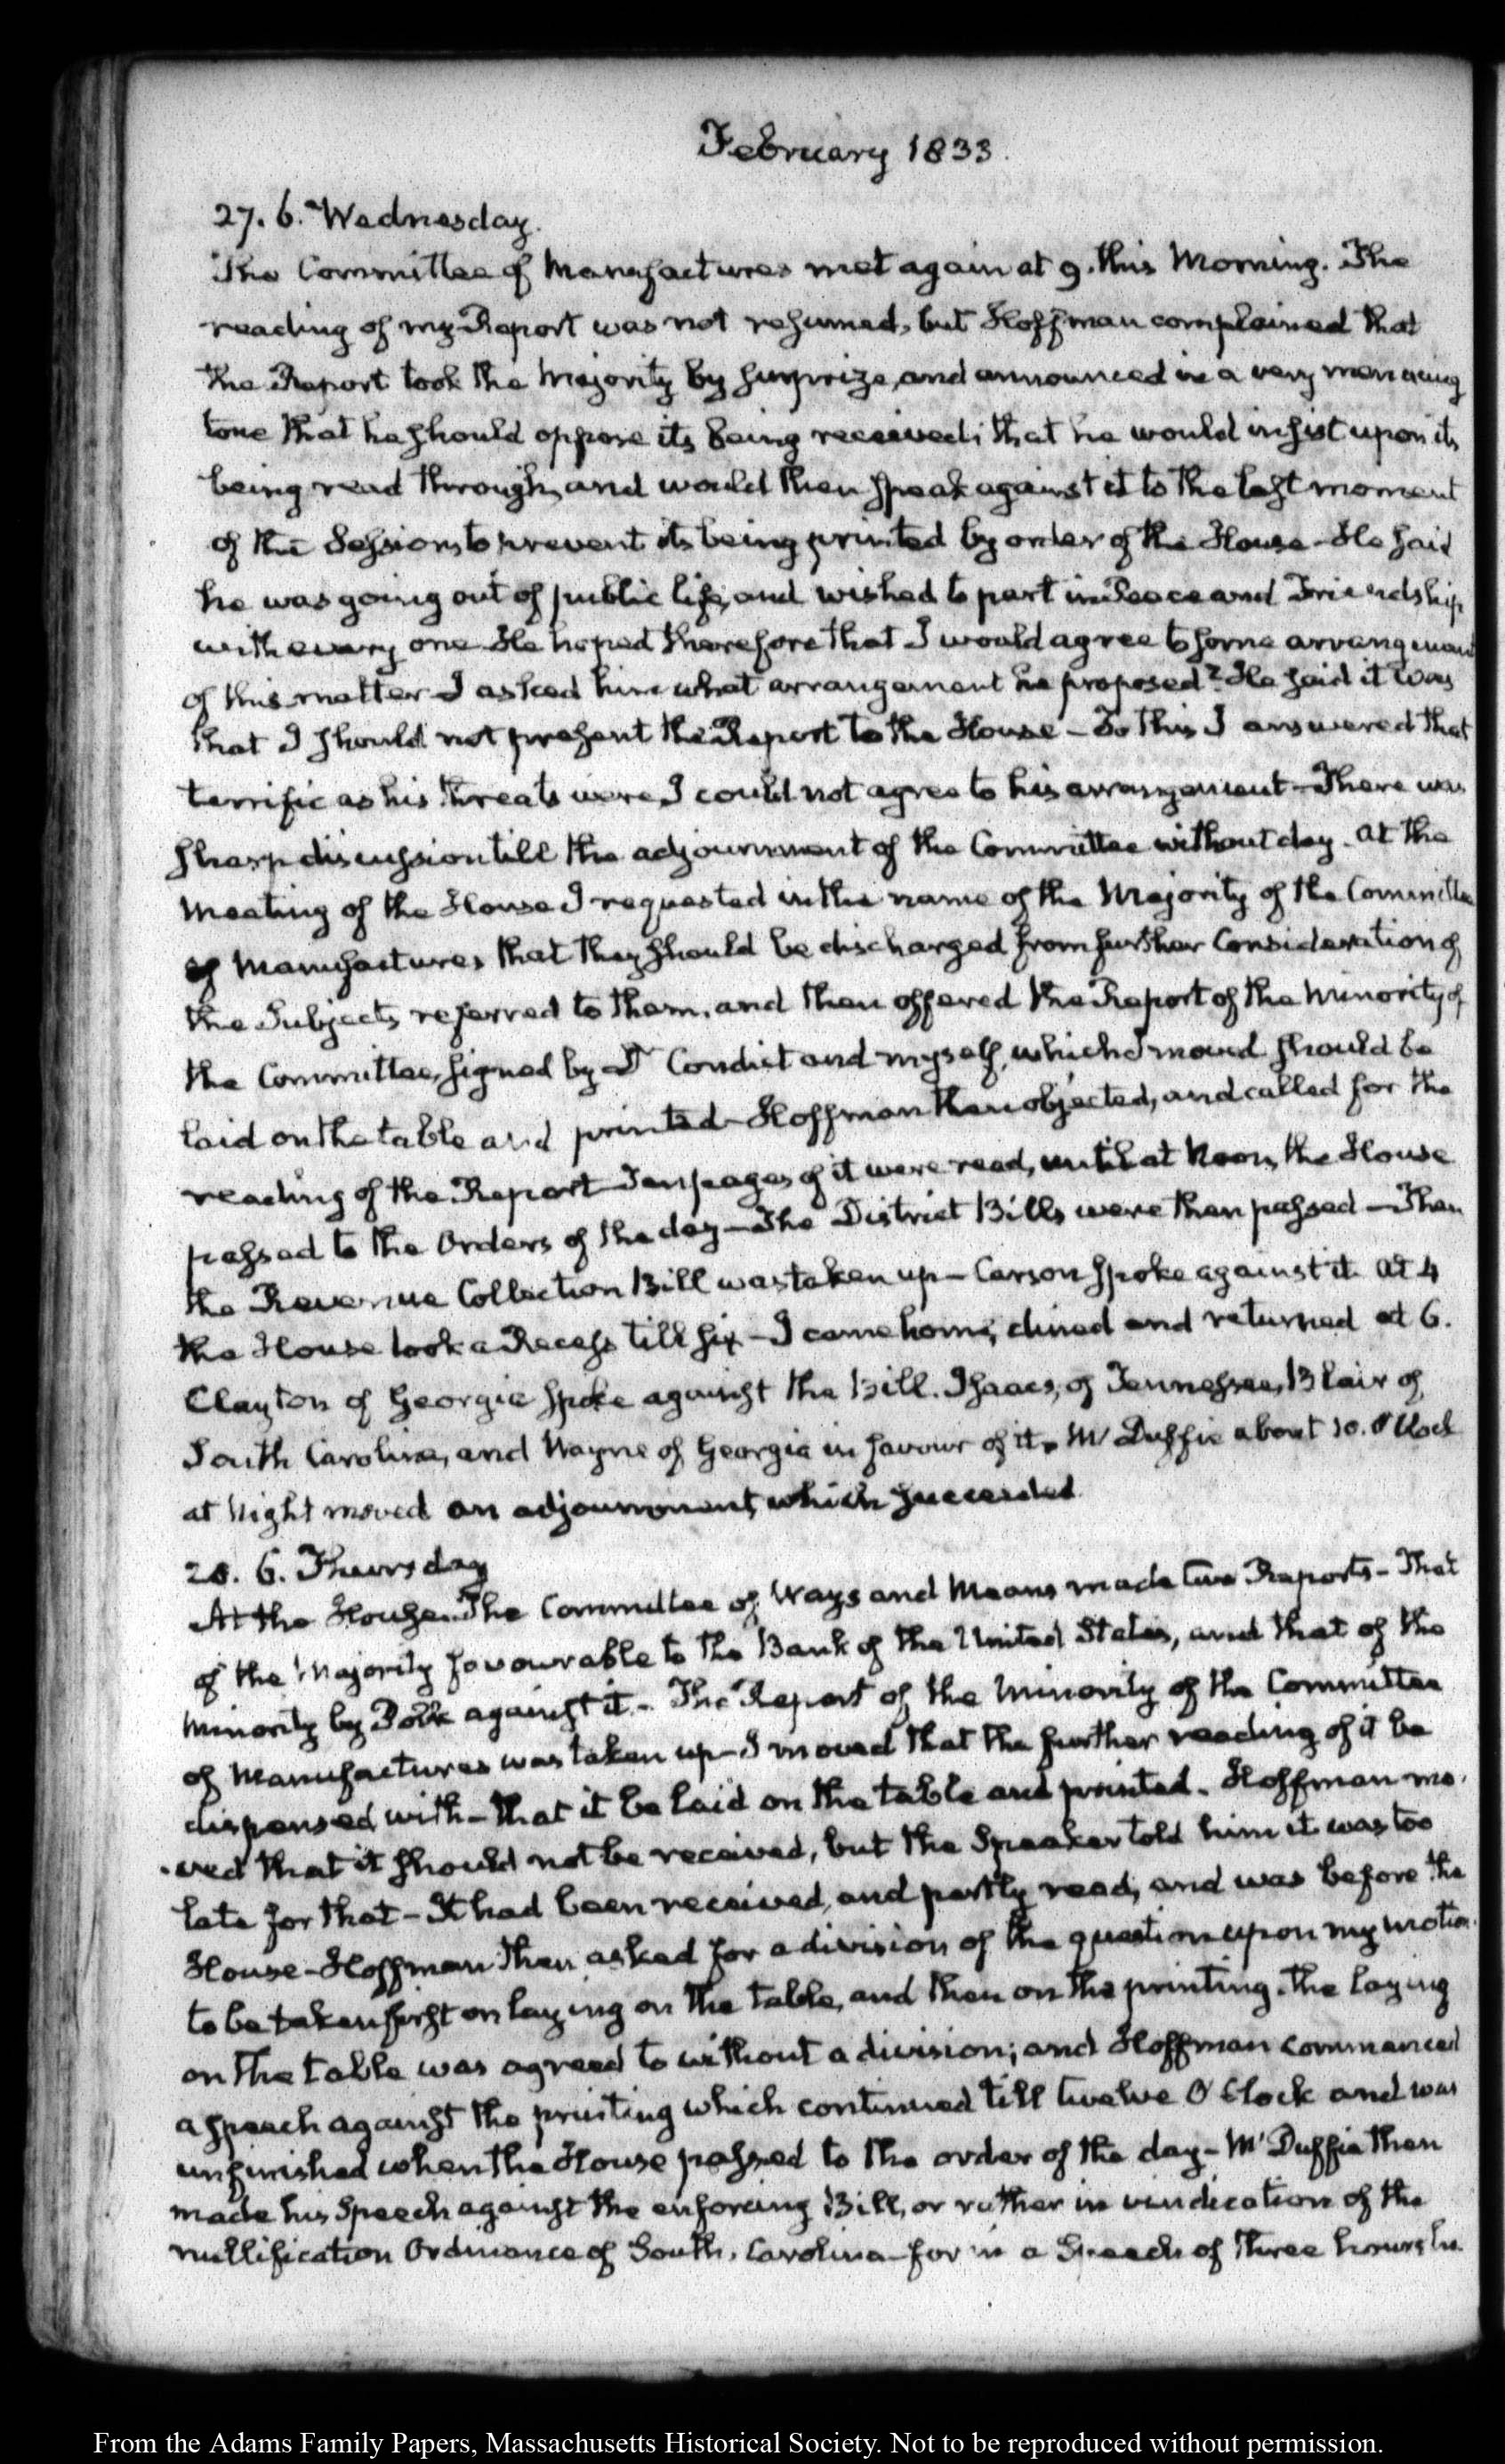 February 1833.
27. 6. Wednesday.
The Committee of Manufactures met again at 9. this Morning. The
reading of my Report was not resumed, but Hoffman complained that
the Report took the Majority by surprize, and announced in a very menacing
tone that he should oppose its being received; that he would insist upon its
being read through, and would then speak against it to the last moment
of the Session, to prevent its being printed by order of the House - He said
he was going out of public life, and wished to part in Peace and Friendship
with every one - He hoped therefore that I would agree to some arrangement
of this matter - I asked him what arrangement he proposed? He said it was
that I should not present the Report to the House - To this I answered that
terrific as his threats were, I could not agree to his arrangement - There was
sharp discussion till the adjournment of the Committee without day. At the
Meeting of the House I requested in the name of the Majority of the Committee
of Manufactures that they should be discharged from further Consideration of
the Subjects referred to them, and then offered the Report of the Minority of
the Committee, signed by Dr Condict and myself, which I moved should be
laid on the table and printed - Hoffman then objected, and called for the
reading of the Report - Ten pages of it were read, until at Noon, the House
passed to the Orders of the day - The District Bills were then passed - Then
the Revenue Collection Bill was taken up - Carson spoke against it. At 4
the House took a Recess till six - I came home, dined and returned at 6.
Clayton of Georgia spoke against the Bill. Isaacs, of Tennessee, Blair of
South Carolina, and Wayne of Georgia in favour of it. McDuffie about 10. O'Clock
at Night moved an adjournment, which succeeded.
28. 6. Thursday
At the House. The Committee of Ways and Means made two Reports - That
of the Majority favourable to the Bank of the United States, and that of the
Minority by Polk against it - The Report of the Minority of the Committee
of Manufactures was taken up - I moved that the further reading of it be
dispensed with - that it be laid on the table and printed. Hoffman mo-
-ved that it should not be received, but the Speaker told him it was too
late for that - It had been received, and partly read, and was before the
House - Hoffman then asked for a division of the question upon my motion
to be taken first on laying on the table, and then on the printing. The laying
on the table was agreed to without a division; and Hoffman commenced
a speech against the printing which continued till twelve O'Clock and was
unfinished when the House passed to the order of the day - McDuffie then
made his Speech against the enforcing Bill, or rather in vindication of the
nullification Ordinance of South Carolina - for in a Speech of three hours he
From the Adams Family Papers, Massachusetts Historical Society. Not to be reproduced without permission.